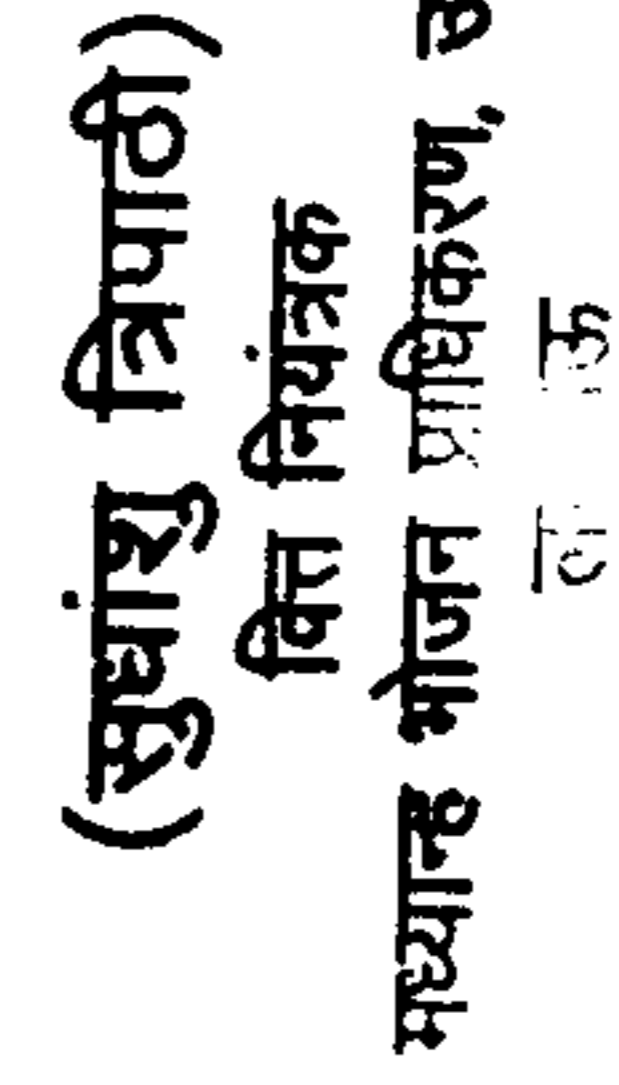 (सुधांशु त्रिपाठी)
वित्त नियंत्रक
मध्यान्ह भोजन प्राधिकरण,